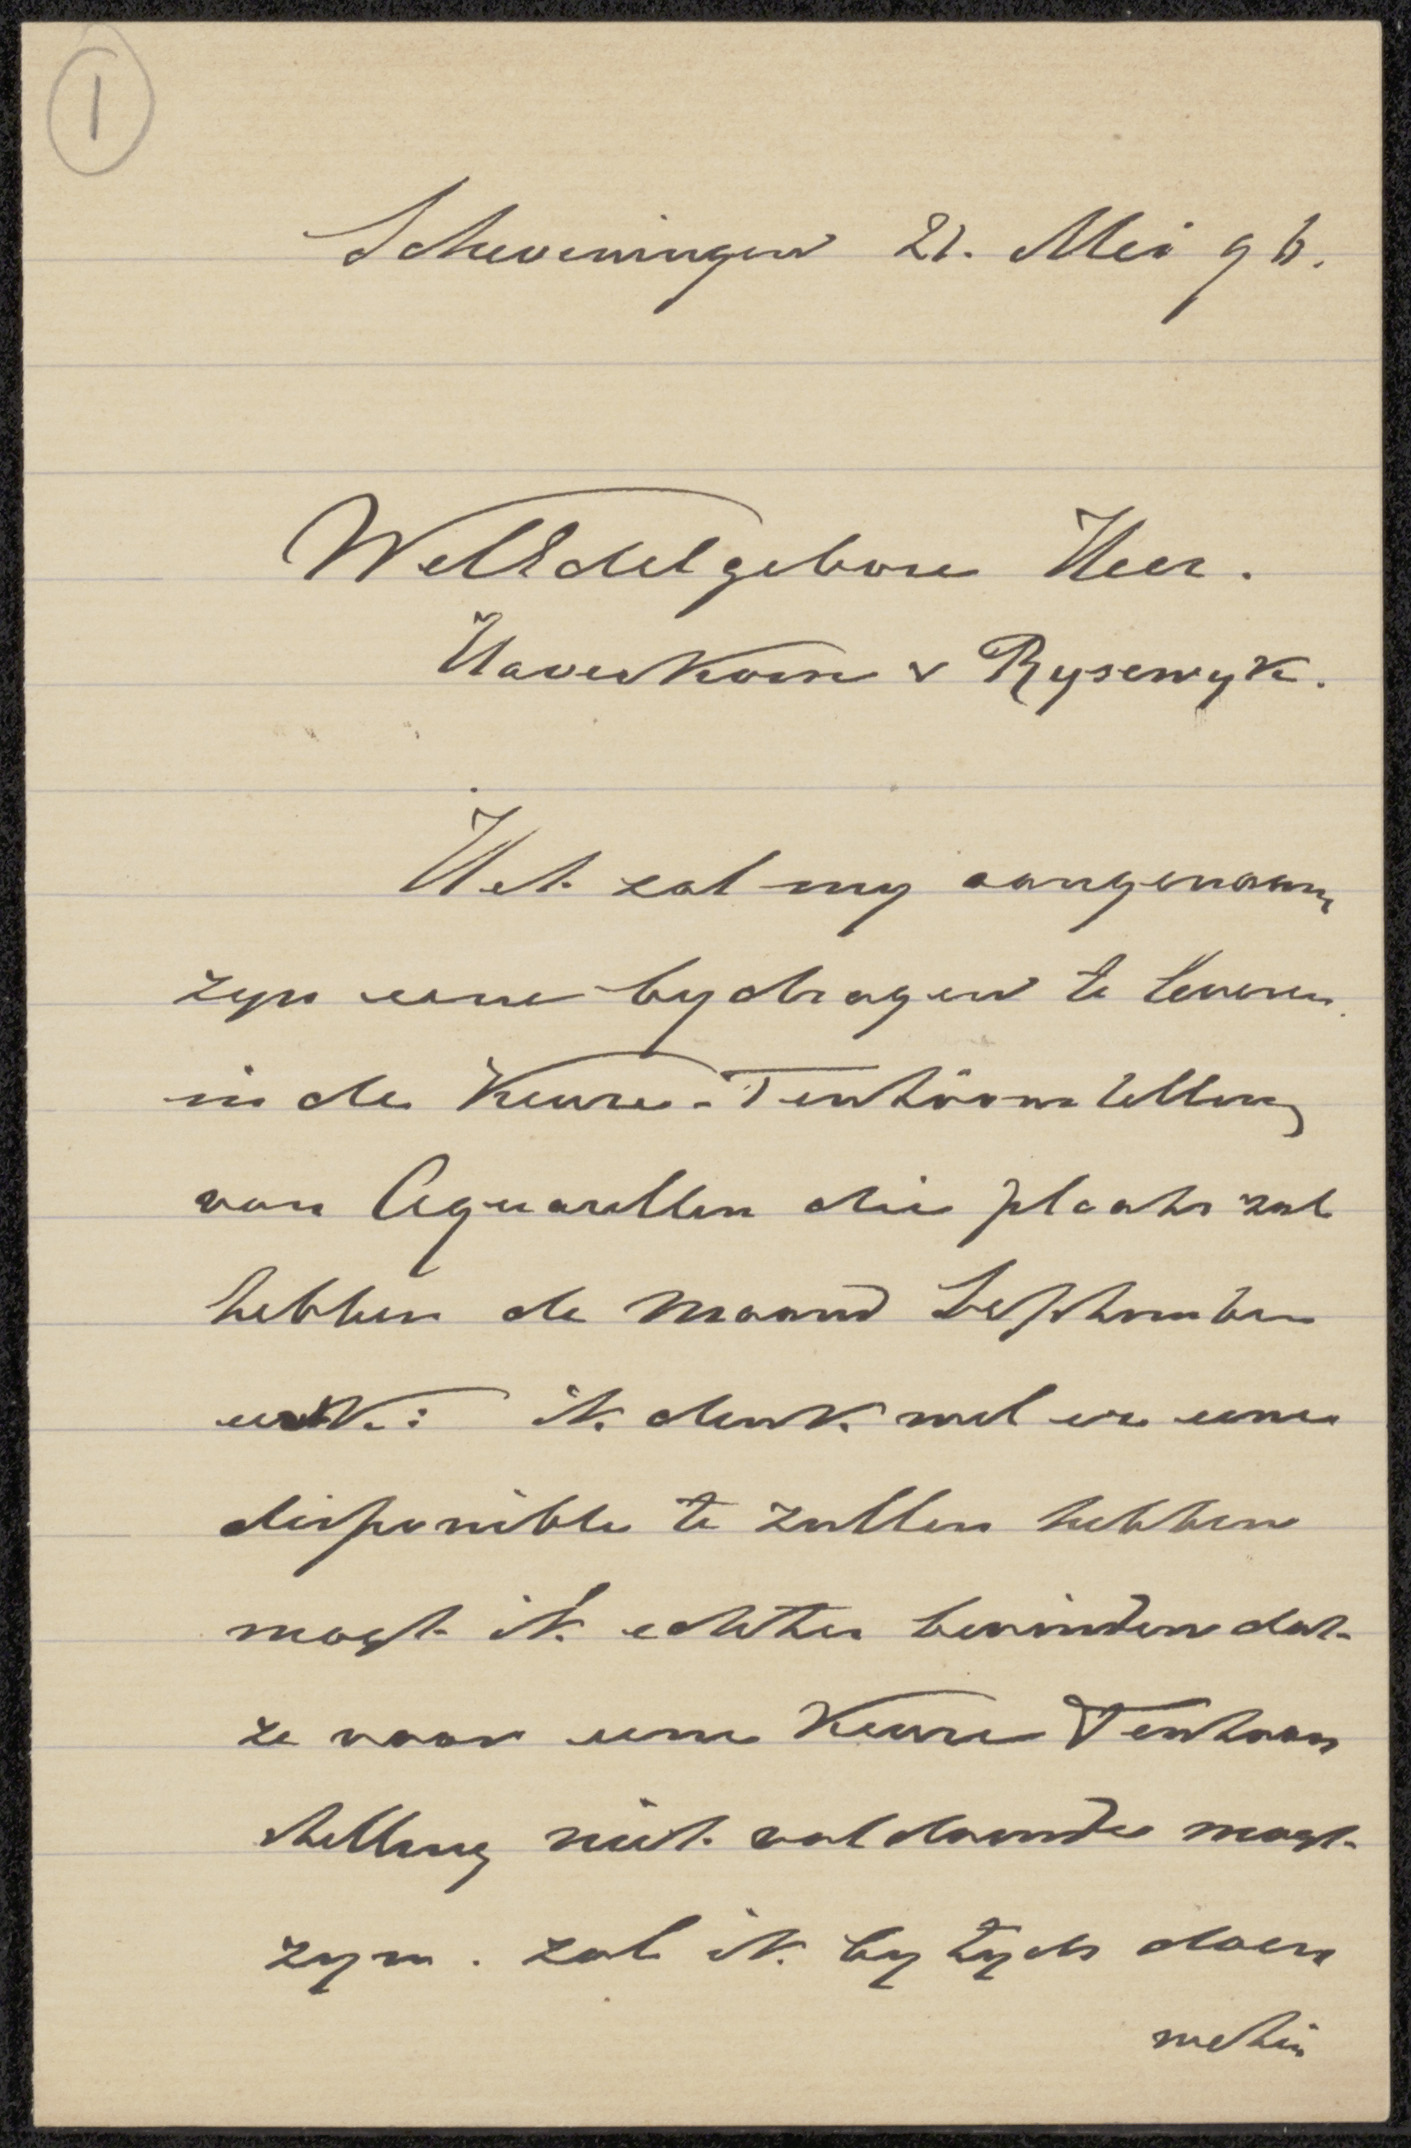 1
Scheveningen 21. Mei 96.
WelEdelgebore Heer.
Haverkorn v Rysewyk.
Het zal my aangenaam
zyn eene bydragen te leveren
in de Keure-Tentoonstelling
van Aquarellen die plaats zal
hebben de maand September
ik denk wel er eene
disponible te zullen hebben
mogt ik echter bevinden dat
ze voor eene Keure Tentoon
stelling niet voldoende mogt
zyn. zal ik by tyds doen